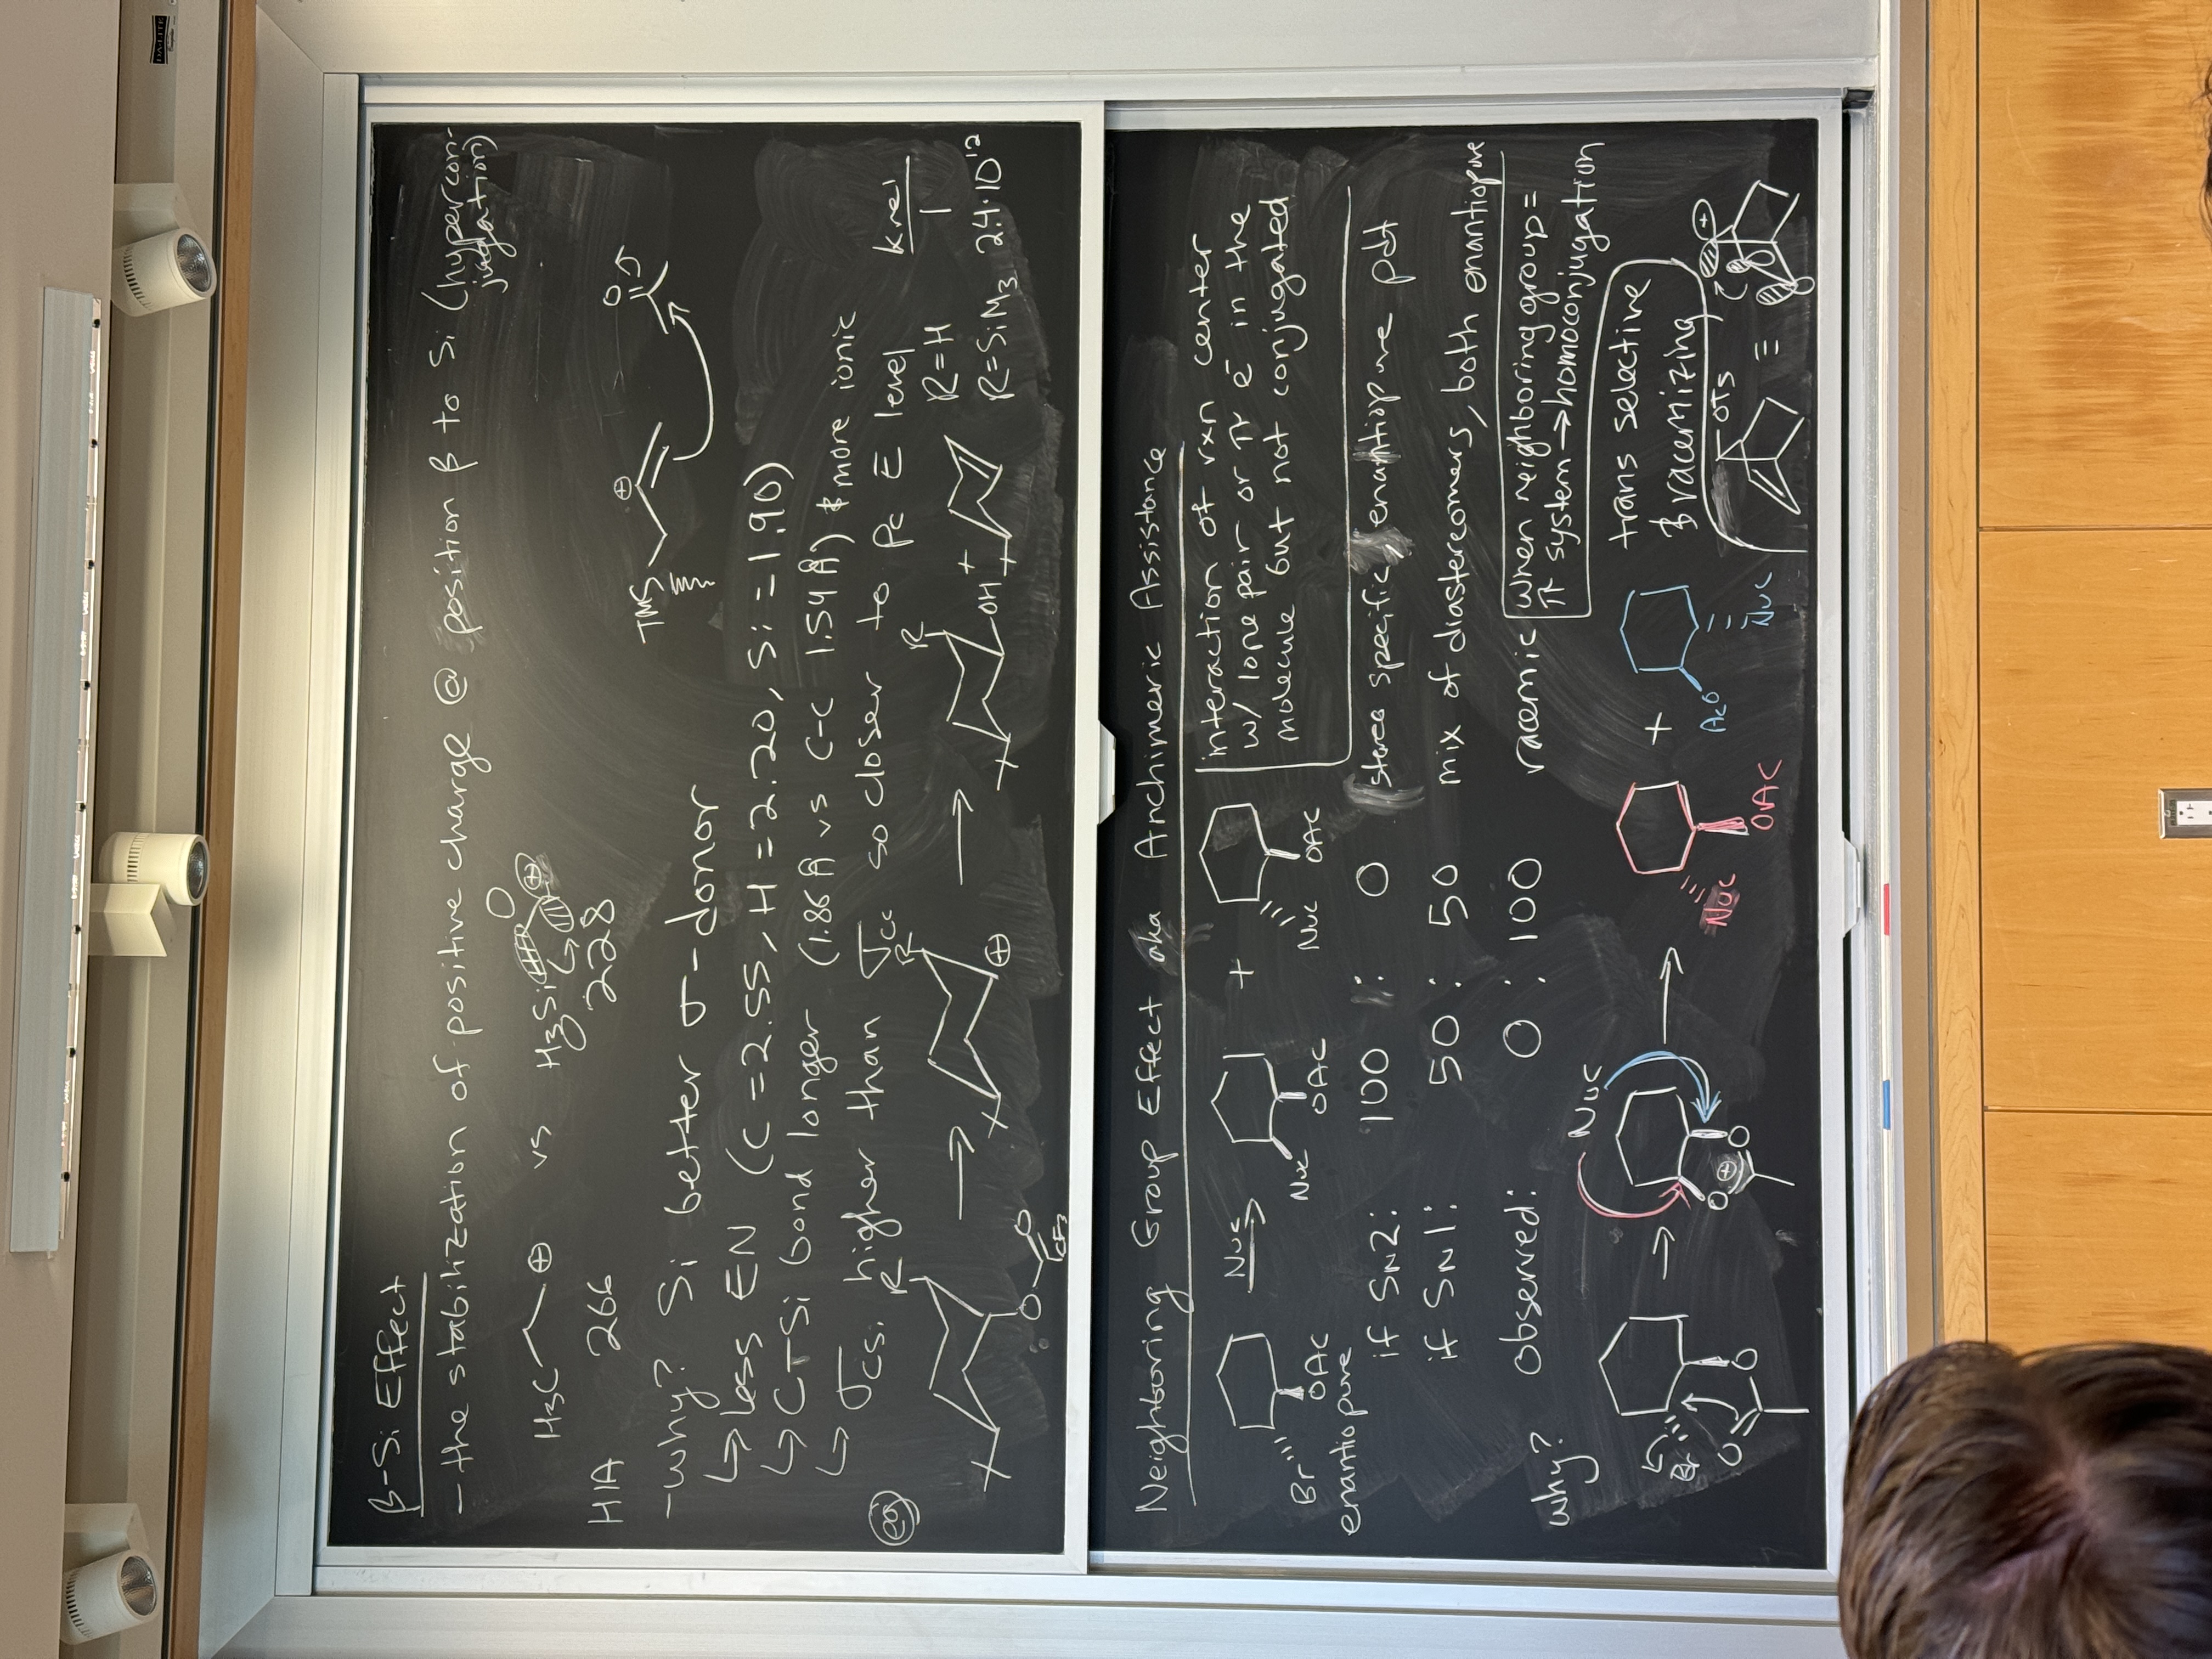 DA-LITE
β-Si Effect
- the stabilization of positive charge @ position β to Si (hypercon-
jugation)
H3C ⊕ vs H3Si ⊕
HIA 266 228
TMS ⊕ O
-why? Si better σ-donor
↳ less EN (C = 2.55, H = 2.20, Si = 1.90)
↳ C-Si bond longer (1.86 Å vs C-C 1.54 Å) & more ionic
↳ σCSi higher than σCC so closer to pC E level
eg R R R krel
R=H 1
⊕ OH + R=SiM3 2.4·10¹²
O O
CF3
Neighboring Group Effect aka Archimeric Assistance
interaction of rxn center
w/ lone pair or π e⁻ in the
molecule but not conjugated
Nuc +
Br OAc Nuc OAc Nuc OAc
enantiopure
if SN2: 100 : 0 stereo specific, enantiopure pdt
if SN1: 50 : 50 mix of diastereomers, both enantiopure
observed: 0 : 100 racemic
when neighboring group =
π system → homoconjugation
why?
Nuc
Br O O O ⊕ O
Nuc OAc + AcO Nuc
trans selective
& racemizing
OTs ≡ ⊕